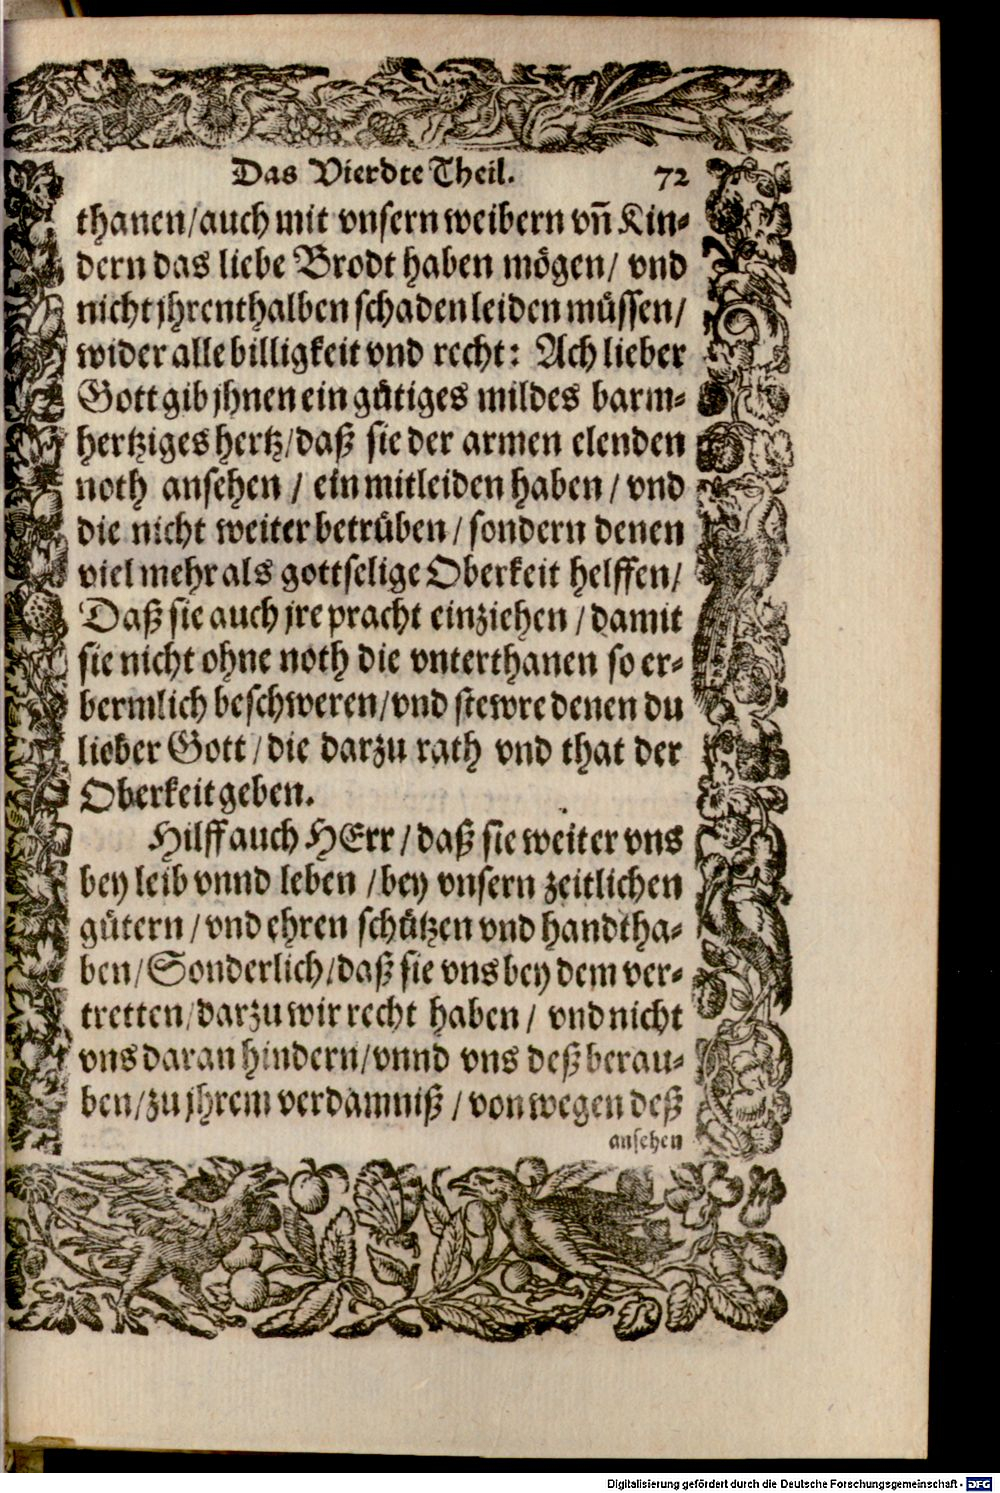 Das Vierdte Theil. 72
thanen/auch mit vnsern weibern vñ Kin-
dern das liebe Brodt haben mögen/ vnd
nicht jhrenthalben schaden leiden müssen/
wider alle billigkeit vnd recht: Ach lieber
Gott gib jhnen ein gütiges mildes barm-
hertziges hertz/daß sie der armen elenden
noth ansehen / ein mitleiden haben / vnd
die nicht weiter betrüben / sondern denen
viel mehr als gottselige Oberkeit helffen/
Daß sie auch jre pracht einziehen / damit
sie nicht ohne noth die vnterthanen so er-
bermlich beschweren/vnd stewre denen du
lieber Gott / die darzu rath vnd that der
Oberkeit geben.
Hilff auch HErr / daß sie weiter vns
bey leib vnnd leben / bey vnsern zeitlichen
gütern / vnd ehren schützen vnd handtha-
ben/ Sonderlich/daß sie vns bey dem ver-
tretten/darzu wir recht haben / vnd nicht
vns daran hindern/vnnd vns deß berau-
ben/zu jhrem verdamniß / von wegen deß
ansehen
Digitalisierung gefördert durch die Deutsche Forschungsgemeinschaft - DFG